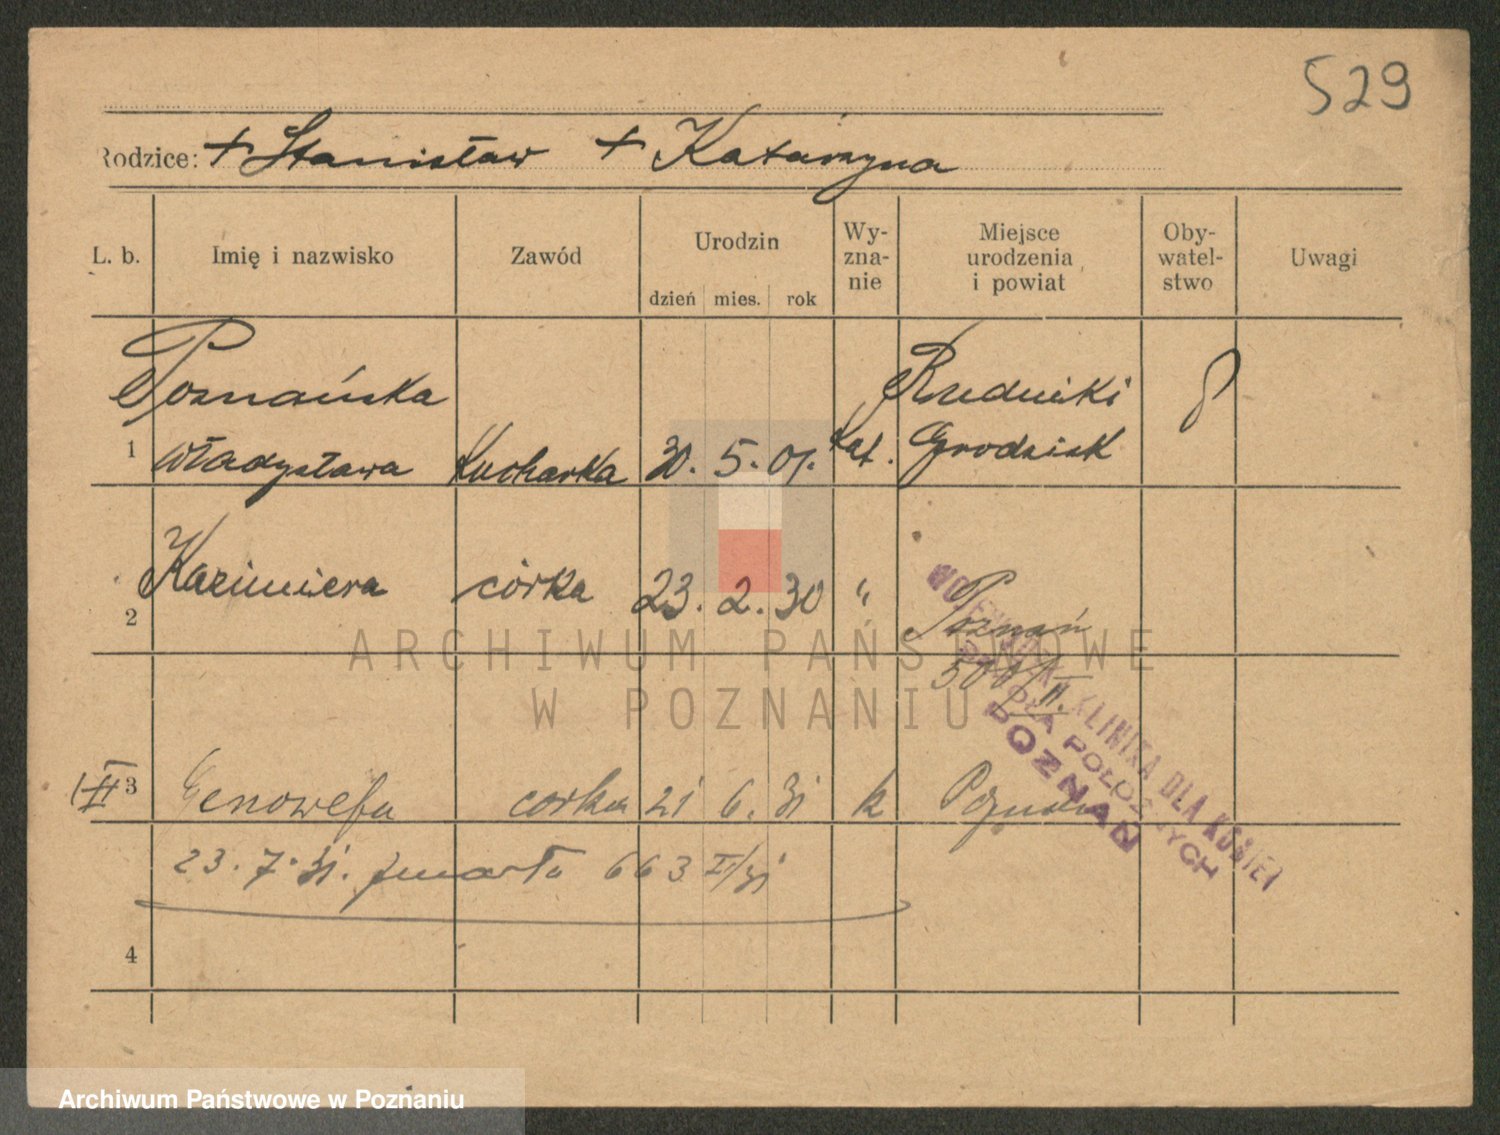 529
Rodzice: + Stanisław + Katarzyna
L. b. Imię i nazwisko Zawód Urodzin dzień mies. rok Wy- zna- nie Miejsce urodzenia i powiat Oby- watel- stwo Uwagi
Poznańska Rudniki
1 Władysława Kucharka 30. 5. 01. Kat. Grodzisk
2 Kazimiera córka 23. 2. 30 " Poznań
500/II.
3 Genowefa corka 21 6. 31 k Poznań
23. 7. 31. zmarła 663 II/31
4
WOJEWÓDZKA KLINIKA DLA KOBIET
SZKOŁA POŁOŻNYCH
POZNAŃ
ARCHIWUM PAŃSTWOWE
W POZNANIU
Archiwum Państwowe w Poznaniu